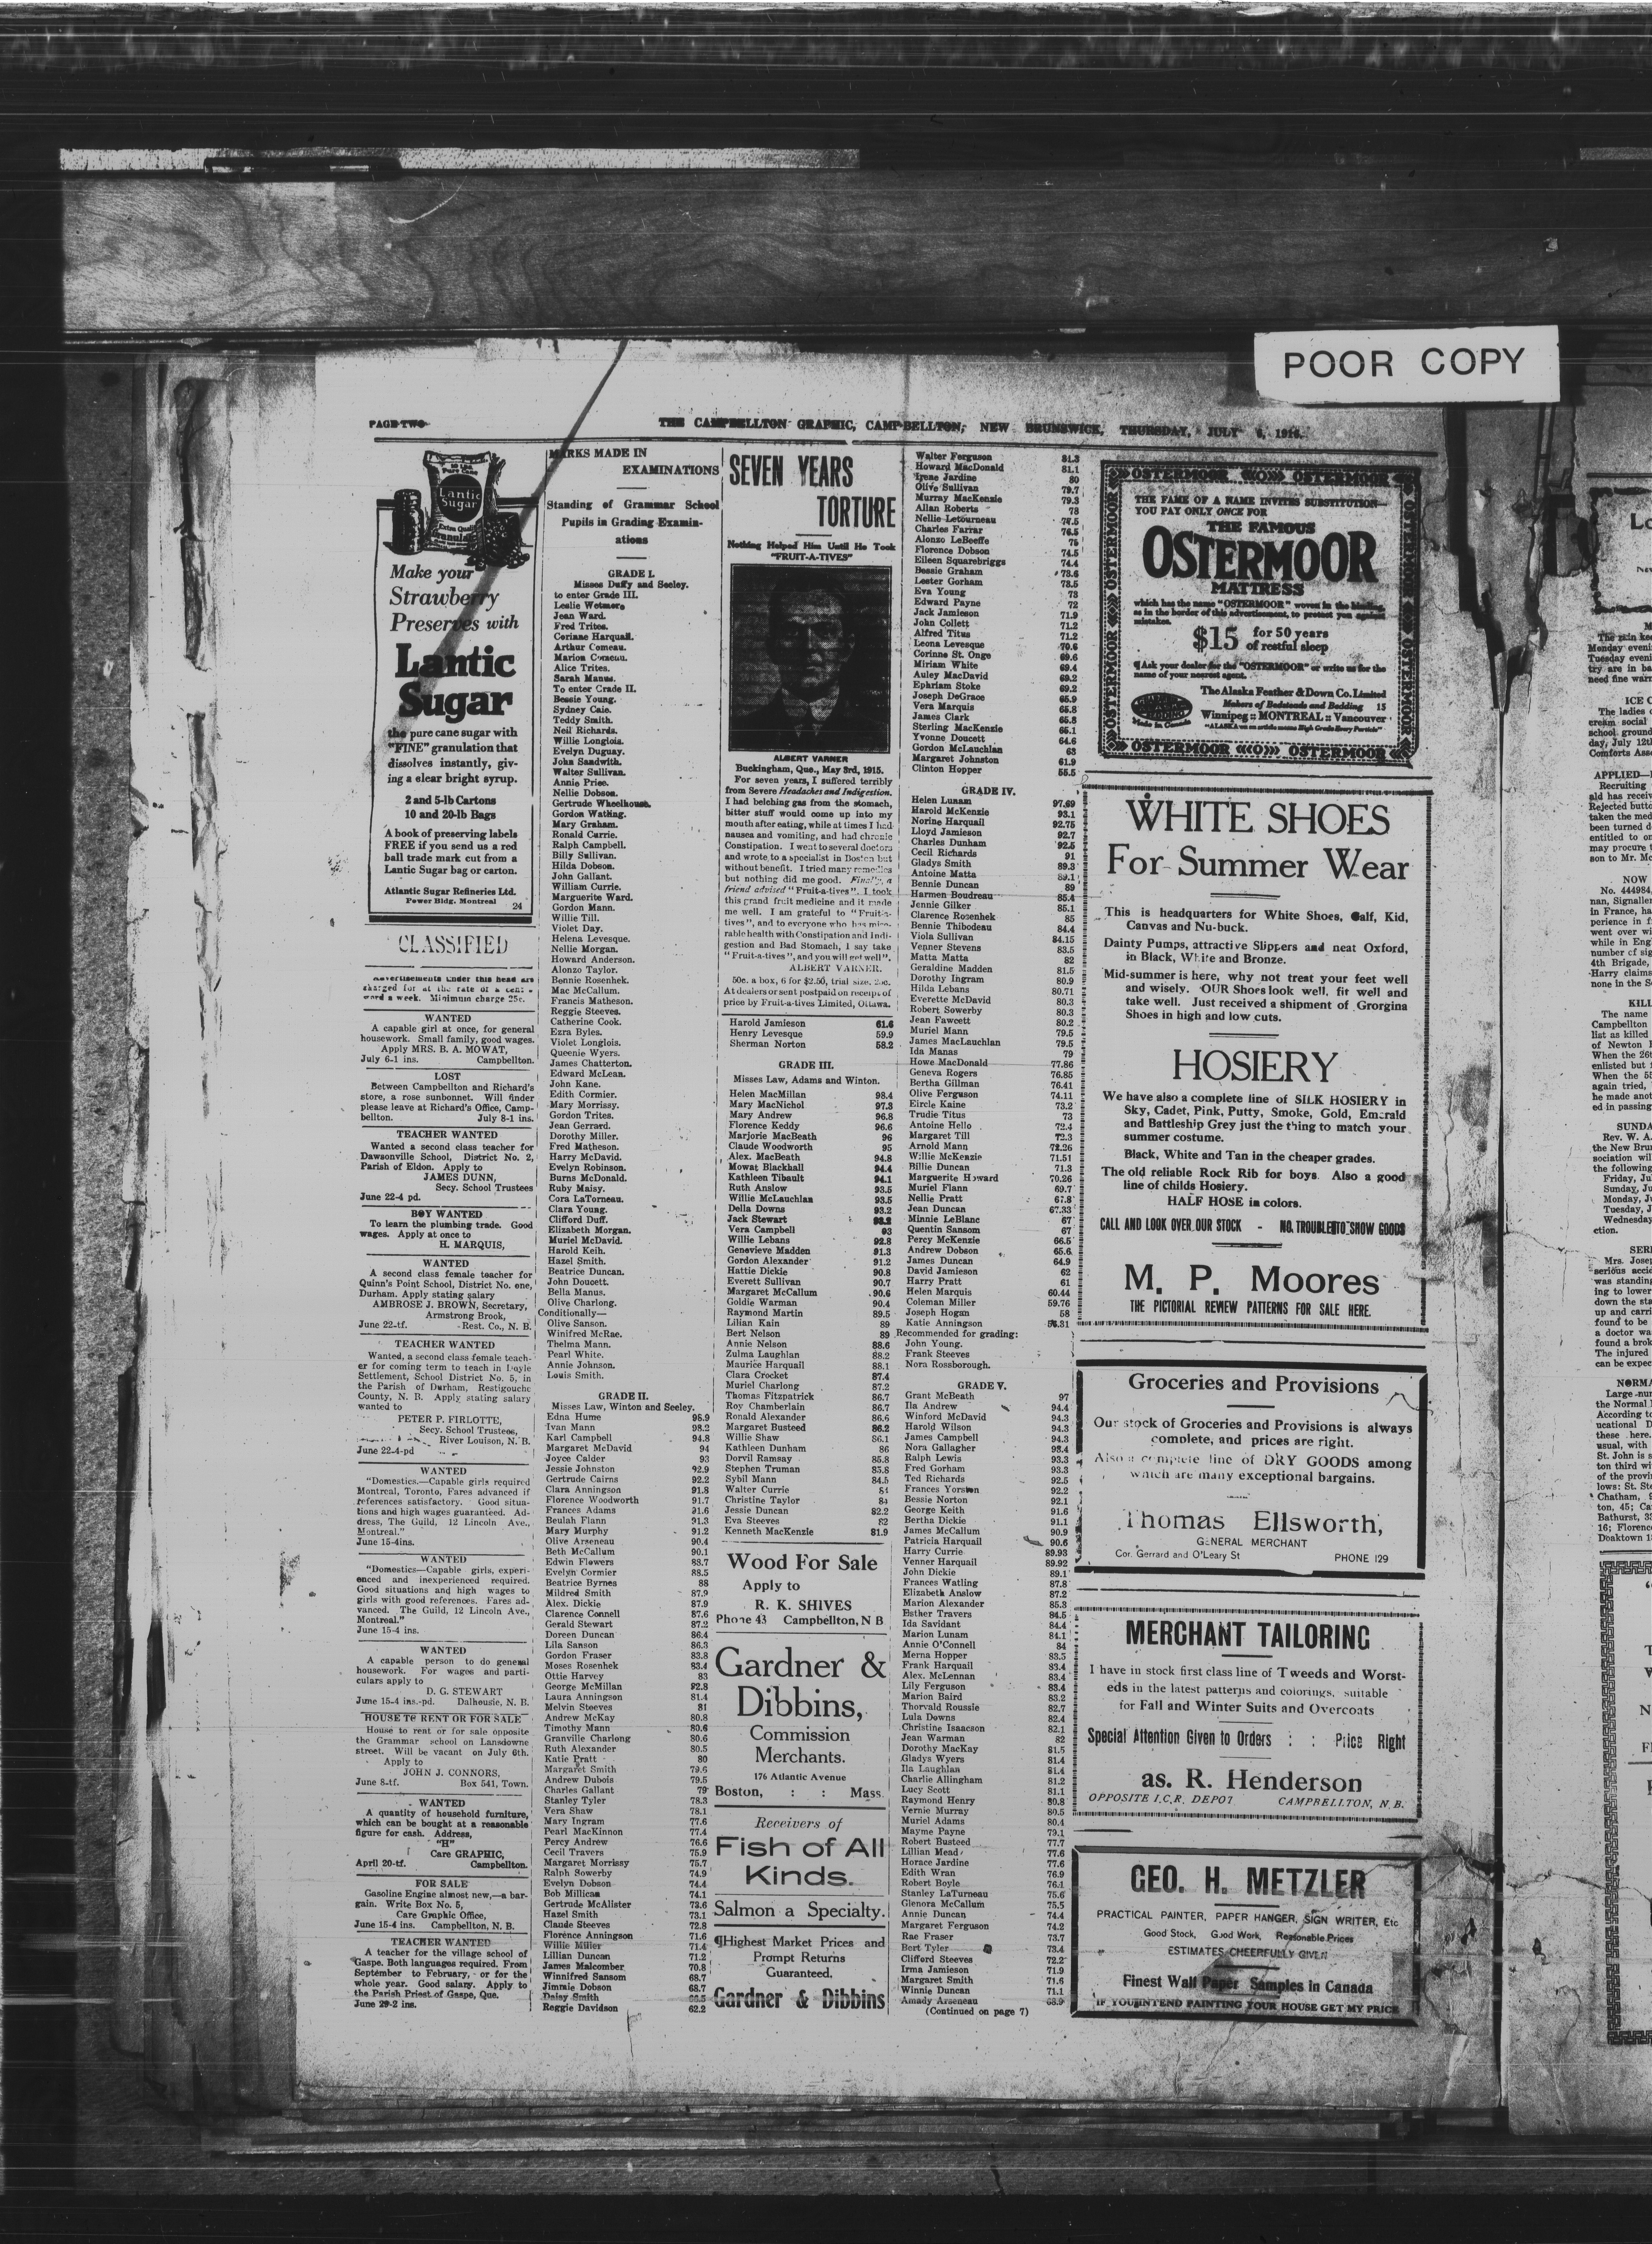 POOR COPY
PAGE TWO
THE CAMPBELLTON GRAPHIC, CAMPBELLTON, NEW BRUNSWICK, THURSDAY, JULY 6, 1916.
Lantic
Sugar
Make your
Strawberry
Preserves with
Lantic
Sugar
the pure cane sugar with
"FINE" granulation that
dissolves instantly, giv-
ing a clear bright syrup.
2 and 5-lb Cartons
10 and 20-lb Bags
A book of preserving labels
FREE if you send us a red
ball trade mark cut from a
Lantic Sugar bag or carton.
Atlantic Sugar Refineries Ltd.
Power Bldg. Montreal 24
CLASSIFIED
Advertisements under this head are
charged for at the rate of a cent a
word a week. Minimum charge 25c.
WANTED
A capable girl at once, for general
housework. Small family, good wages.
Apply MRS. B. A. MOWAT,
July 6-1 ins. Campbellton.
LOST
Between Campbellton and Richard's
store, a rose sunbonnet. Will finder
please leave at Richard's Office, Camp-
bellton. July 8-1 ins.
TEACHER WANTED
Wanted a second class teacher for
Dawsonville School, District No. 2,
Parish of Eldon. Apply to
JAMES DUNN,
Secy. School Trustees
June 22-4 pd.
BOY WANTED
To learn the plumbing trade. Good
wages. Apply at once to
H. MARQUIS,
WANTED
A second class female teacher for
Quinn's Point School, District No. one,
Durham. Apply stating salary
AMBROSE J. BROWN, Secretary,
Armstrong Brook,
June 22-tf. Rest. Co., N. B.
TEACHER WANTED
Wanted, a second class female teach-
er for coming term to teach in Doyle
Settlement, School District No. 5, in
the Parish of Durham, Restigouche
County, N. B. Apply stating salary
wanted to
PETER P. FIRLOTTE,
Secy. School Trustees,
River Louison, N. B.
June 22-4-pd
WANTED
"Domestics.—Capable girls required
Montreal, Toronto, Fares advanced if
references satisfactory. Good situa-
tions and high wages guaranteed. Ad-
dress, The Guild, 12 Lincoln Ave.,
Montreal."
June 15-4ins.
WANTED
"Domestics—Capable girls, experi-
enced and inexperienced required.
Good situations and high wages to
girls with good references. Fares ad-
vanced. The Guild, 12 Lincoln Ave.,
Montreal."
June 15-4 ins.
WANTED
A capable person to do general
housework. For wages and parti-
culars apply to
D. G. STEWART
June 15-4 ins.-pd. Dalhousie, N. B.
HOUSE TO RENT OR FOR SALE
House to rent or for sale opposite
the Grammar school on Lansdowne
street. Will be vacant on July 6th.
Apply to
JOHN J. CONNORS,
June 8-tf. Box 541, Town.
WANTED
A quantity of household furniture,
which can be bought at a reasonable
figure for cash. Address,
"H"
Care GRAPHIC,
April 20-tf. Campbellton.
FOR SALE
Gasoline Engine almost new,—a bar-
gain. Write Box No. 5,
Care Graphic Office,
June 15-4 ins. Campbellton, N. B.
TEACHER WANTED
A teacher for the village school of
Gaspe. Both languages required. From
September to February, or for the
whole year. Good salary. Apply to
the Parish Priest of Gaspe, Que.
June 29-2 ins.
MARKS MADE IN
EXAMINATIONS
Standing of Grammar School
Pupils in Grading Examin-
ations
GRADE I.
Misses Duffy and Seeley.
to enter Grade III.
Leslie Wetmore
Jean Ward.
Fred Trites.
Corinne Harquail.
Arthur Comeau.
Marion Comeau.
Alice Trites.
Sarah Manus.
To enter Grade II.
Bessie Young.
Sydney Caie.
Teddy Smith.
Neil Richards.
Willie Longlois.
Evelyn Duguay.
John Sandwith.
Walter Sullivan.
Annie Price.
Nellie Dobson.
Gertrude Wheelhouse.
Gordon Watling.
Mary Graham.
Ronald Currie.
Ralph Campbell.
Billy Sullivan.
Hilda Dobson.
John Gallant.
William Currie.
Marguerite Ward.
Gordon Mann.
Willie Till.
Violet Day.
Helena Levesque.
Nellie Morgan.
Howard Anderson.
Alonzo Taylor.
Bennie Rosenhek.
Mac McCallum.
Francis Matheson.
Reggie Steeves.
Catherine Cook.
Ezra Byles.
Violet Longlois.
Queenie Wyers.
James Chatterton.
Edward McLean.
John Kane.
Edith Cormier.
Mary Morrissy.
Gordon Trites.
Jean Gerrard.
Dorothy Miller.
Fred Matheson.
Harry McDavid.
Evelyn Robinson.
Burns McDonald.
Ruby Maisy.
Cora LaTorneau.
Clara Young.
Clifford Duff.
Elizabeth Morgan.
Muriel McDavid.
Harold Keih.
Hazel Smith.
Beatrice Duncan.
John Doucett.
Bella Manus.
Olive Charlong.
Conditionally—
Olive Sanson.
Winifred McRae.
Thelma Mann.
Pearl White.
Annie Johnson.
Louis Smith.
GRADE II.
Misses Law, Winton and Seeley.
Edna Hume 98.9
Ivan Mann 98.2
Karl Campbell 94.8
Margaret McDavid 94
Joyce Calder 93
Jessie Johnston 92.9
Gertrude Cairns 92.2
Clara Anningson 91.8
Florence Woodworth 91.7
Frances Adams 91.6
Beulah Flann 91.3
Mary Murphy 91.2
Olive Arseneau 90.4
Beth McCallum 90.1
Edwin Flowers 88.7
Evelyn Cormier 88.5
Beatrice Byrnes 88
Mildred Smith 87.9
Alex. Dickie 87.9
Clarence Connell 87.6
Gerald Stewart 87.2
Doreen Duncan 86.4
Lila Sanson 86.3
Gordon Fraser 83.8
Moses Rosenhek 83.4
Ottie Harvey 83
George McMillan 82.8
Laura Anningson 81.4
Melvin Steeves 81
Andrew McKay 80.8
Timothy Mann 80.6
Granville Charlong 80.6
Ruth Alexander 80.5
Katie Pratt 80
Margaret Smith 79.6
Andrew Dubois 79.5
Charles Gallant 79
Stanley Tyler 78.3
Vera Shaw 78.1
Mary Ingram 77.6
Pearl MacKinnon 77.4
Percy Andrew 76.6
Cecil Travers 75.9
Margaret Morrissy 75.7
Ralph Sowerby 74.9
Evelyn Dobson 74.4
Bob Millican 74.1
Gertrude McAlister 73.6
Hazel Smith 73.1
Claude Steeves 72.8
Florence Anningson 71.6
Willie Miller 71.4
Lillian Duncan 71.2
James Malcomber 70.8
Winnifred Sansom 68.7
Jimmie Dobson 68.7
Daisy Smith 66.5
Reggie Davidson 62.2
SEVEN YEARS
TORTURE
Nothing Helped Him Until He Took
"FRUIT-A-TIVES"
ALBERT VARNER
Buckingham, Que., May 3rd, 1915.
For seven years, I suffered terribly
from Severe Headaches and Indigestion.
I had belching gas from the stomach,
bitter stuff would come up into my
mouth after eating, while at times I had
nausea and vomiting, and had chronic
Constipation. I went to several doctors
and wrote to a specialist in Boston but
without benefit. I tried many remedies
but nothing did me good. Finally, a
friend advised "Fruit-a-tives". I took
this grand fruit medicine and it made
me well. I am grateful to "Fruit-a-
tives", and to everyone who has mise-
rable health with Constipation and Indi-
gestion and Bad Stomach, I say take
"Fruit-a-tives", and you will get well".
ALBERT VARNER.
50c. a box, 6 for $2.50, trial size, 25c.
At dealers or sent postpaid on receipt of
price by Fruit-a-tives Limited, Ottawa.
Harold Jamieson 61.6
Henry Levesque 59.9
Sherman Norton 58.2
GRADE III.
Misses Law, Adams and Winton.
Helen MacMillan 98.4
Mary MacNichol 97.3
Mary Andrew 96.8
Florence Keddy 96.6
Marjorie MacBeath 96
Claude Woodworth 95
Alex. MacBeath 94.8
Mowat Blackhall 94.4
Kathleen Tibault 94.1
Ruth Anslow 93.5
Willie McLauchlan 93.5
Della Downs 93.2
Jack Stewart 93.2
Vera Campbell 93
Willie Lebans 92.8
Genevieve Madden 91.3
Gordon Alexander 91.2
Hattie Dickie 90.8
Everett Sullivan 90.7
Margaret McCallum 90.6
Goldie Warman 90.4
Raymond Martin 89.5
Lilian Kain 89
Bert Nelson 89
Annie Nelson 88.6
Zulma Laughlan 88.2
Maurice Harquail 88.1
Clara Crocket 87.4
Muriel Charlong 87.2
Thomas Fitzpatrick 86.7
Roy Chamberlain 86.7
Ronald Alexander 86.6
Margaret Busteed 86.2
Willie Shaw 86.1
Kathleen Dunham 86
Dorvil Ramsay 85.8
Stephen Truman 85.8
Sybil Mann 84.5
Walter Currie 84
Christine Taylor 84
Jessie Duncan 82.2
Eva Steeves 82
Kenneth MacKenzie 81.9
Wood For Sale
Apply to
R. K. SHIVES
Phone 43 Campbellton, N B
Gardner &
Dibbins,
Commission
Merchants.
176 Atlantic Avenue
Boston, : : Mass.
Receivers of
Fish of All
Kinds.
Salmon a Specialty.
¶Highest Market Prices and
Prompt Returns
Guaranteed.
Gardner & Dibbins
Walter Ferguson 81.3
Howard MacDonald 81.1
Irene Jardine 80
Olive Sullivan 79.7
Murray MacKenzie 79.3
Allan Roberts 78
Nellie Letourneau 77.5
Charles Farrar 76.5
Alonzo LeBeeffe 75
Florence Dobson 74.5
Eileen Squarebriggs 74.4
Bessie Graham 73.6
Lester Gorham 73.5
Eva Young 73
Edward Payne 72
Jack Jamieson 71.9
John Collett 71.2
Alfred Titus 71.2
Leona Levesque 70.6
Corinne St. Onge 69.6
Miriam White 69.4
Auley MacDavid 69.2
Ephriam Stoke 69.2
Joseph DeGrace 65.9
Vera Marquis 65.8
James Clark 65.8
Sterling MacKenzie 65.1
Yvonne Doucett 64.6
Gordon McLauchlan 63
Margaret Johnston 61.9
Clinton Hopper 55.5
GRADE IV.
Helen Lunam 97.69
Harold McKenzie 93.1
Norine Harquail 92.75
Lloyd Jamieson 92.7
Charles Dunham 92.5
Cecil Richards 91
Gladys Smith 89.3
Antoine Matta 89.1
Bennie Duncan 89
Harmen Boudreau 85.4
Jennie Gilker 85.1
Clarence Rosenhek 85
Bennie Thibodeau 84.4
Viola Sullivan 84.15
Venner Stevens 83.5
Matta Matta 82
Geraldine Madden 81.5
Dorothy Ingram 80.9
Hilda Lebans 80.71
Everette McDavid 80.3
Robert Sowerby 80.3
Jean Fawcett 80.2
Muriel Mann 79.5
James MacLauchlan 79.5
Ida Manas 79
Howe MacDonald 77.86
Geneva Rogers 76.85
Bertha Gillman 76.41
Olive Ferguson 74.11
Eircle Kaine 73.2
Trudie Titus 73
Antoine Hello 72.4
Margaret Till 72.3
Arnold Mann 72.26
Willie McKenzie 71.51
Billie Duncan 71.3
Marguerite Howard 70.26
Muriel Flann 69.7
Nellie Pratt 67.8
Jean Duncan 67.33
Minnie LeBlanc 67
Quentin Sansom 67
Percy McKenzie 66.5
Andrew Dobson 65.6
James Duncan 64.9
David Jamieson 62
Harry Pratt 61
Helen Marquis 60.44
Coleman Miller 59.76
Joseph Hogan 58
Katie Anningson 56.31
Recommended for grading:
John Young.
Frank Steeves
Nora Rossborough.
GRADE V.
Grant McBeath 97
Ila Andrew 94.4
Winford McDavid 94.3
Harold Wilson 94.3
James Campbell 94.3
Nora Gallagher 93.4
Ralph Lewis 93.3
Fred Gorham 93.3
Ted Richards 92.5
Frances Yorston 92.2
Bessie Norton 92.1
George Keith 91.6
Bertha Dickie 91.1
James McCallum 90.9
Patricia Harquail 90.6
Harry Currie 89.93
Venner Harquail 89.92
John Dickie 89.1
Frances Watling 87.8
Elizabeth Anslow 87.2
Marion Alexander 85.3
Esther Travers 84.5
Ida Savidant 84.4
Marion Lunam 84.1
Annie O'Connell 84
Merna Hopper 83.5
Frank Harquail 83.4
Alex. McLennan 83.4
Lily Ferguson 83.4
Marion Baird 83.2
Thorvald Roussie 82.7
Lula Downs 82.4
Christine Isaacson 82.1
Jean Warman 82
Dorothy MacKay 81.5
Gladys Wyers 81.4
Ila Laughlan 81.4
Charlie Allingham 81.2
Lucy Scott 81.1
Raymond Henry 80.8
Vernie Murray 80.5
Muriel Adams 80.4
Mayme Payne 79.1
Robert Busteed 77.7
Lillian Mead 77.6
Horace Jardine 77.6
Edith Wran 76.9
Robert Boyle 76.1
Stanley LaTurneau 75.6
Glenora McCallum 75.5
Annie Duncan 74.4
Margaret Ferguson 74.2
Rae Fraser 73.7
Bert Tyler 73.4
Clifford Steeves 72.2
Irma Jamieson 71.9
Margaret Smith 71.6
Winnie Duncan 71.1
Amady Arseneau 68.9
(Continued on page 7)
OSTERMOOR OSTERMOOR
THE FAME OF A NAME INVITES SUBSTITUTION—
YOU PAY ONLY ONCE FOR
THE FAMOUS
OSTERMOOR
MATTRESS
which has the name "OSTERMOOR" woven in the binding,
as in the border of this advertisement, to protect you against
mistakes.
$15 for 50 years
of restful sleep
¶Ask your dealer for the "OSTERMOOR" or write us for the
name of your nearest agent.
The Alaska Feather & Down Co. Limited
Makers of Bedsteads and Bedding 15
Winnipeg :: MONTREAL :: Vancouver
"ALASKA on an article means High Grade Every Particle"
Made in Canada
OSTERMOOR OSTERMOOR
WHITE SHOES
For Summer Wear
This is headquarters for White Shoes, Calf, Kid,
Canvas and Nu-buck.
Dainty Pumps, attractive Slippers and neat Oxford,
in Black, White and Bronze.
Mid-summer is here, why not treat your feet well
and wisely. OUR Shoes look well, fit well and
take well. Just received a shipment of Grorgina
Shoes in high and low cuts.
HOSIERY
We have also a complete line of SILK HOSIERY in
Sky, Cadet, Pink, Putty, Smoke, Gold, Emerald
and Battleship Grey just the thing to match your
summer costume.
Black, White and Tan in the cheaper grades.
The old reliable Rock Rib for boys. Also a good
line of childs Hosiery.
HALF HOSE in colors.
CALL AND LOOK OVER OUR STOCK - NO TROUBLE TO SHOW GOODS
M. P. Moores
THE PICTORIAL REVIEW PATTERNS FOR SALE HERE.
Groceries and Provisions
Our stock of Groceries and Provisions is always
complete, and prices are right.
Also a complete line of DRY GOODS among
which are many exceptional bargains.
Thomas Ellsworth,
GENERAL MERCHANT
Cor. Gerrard and O'Leary St PHONE 129
MERCHANT TAILORING
I have in stock first class line of Tweeds and Worst-
eds in the latest patterns and colorings, suitable
for Fall and Winter Suits and Overcoats
Special Attention Given to Orders : : Price Right
as. R. Henderson
OPPOSITE I.C.R. DEPOT CAMPBELLTON, N. B.
GEO. H. METZLER
PRACTICAL PAINTER, PAPER HANGER, SIGN WRITER, Etc
Good Stock, Good Work, Reasonable Prices
ESTIMATES CHEERFULLY GIVEN
Finest Wall Paper Samples in Canada
IF YOU INTEND PAINTING YOUR HOUSE GET MY PRICE